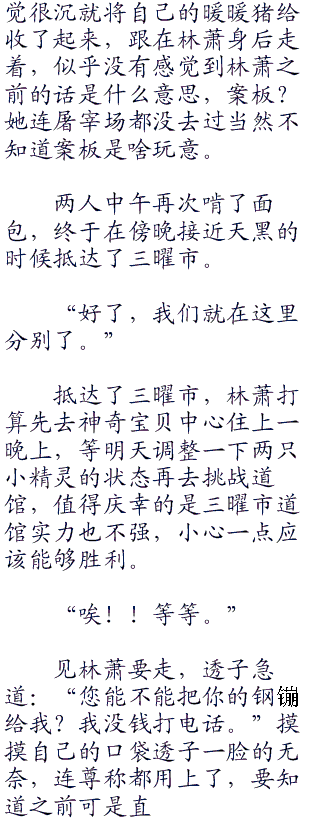 觉很沉就将自己的暖暖猪给
收了起来，跟在林萧身后走
着，似乎没有感觉到林萧之
前的话是什么意思，案板？
她连屠宰场都没去过当然不
知道案板是啥玩意。
两人中午再次啃了面
包，终于在傍晚接近天黑的
时候抵达了三曜市。
“好了，我们就在这里
分别了。”
抵达了三曜市，林萧打
算先去神奇宝贝中心住上一
晚上，等明天调整一下两只
小精灵的状态再去挑战道
馆，值得庆幸的是三曜市道
馆实力也不强，小心一点应
该能够胜利。
“唉！！等等。”
见林萧要走，透子急
道：“您能不能把你的钢镚
给我？我没钱打电话。”摸
摸自己的口袋透子一脸的无
奈，连尊称都用上了，要知
道之前可是直